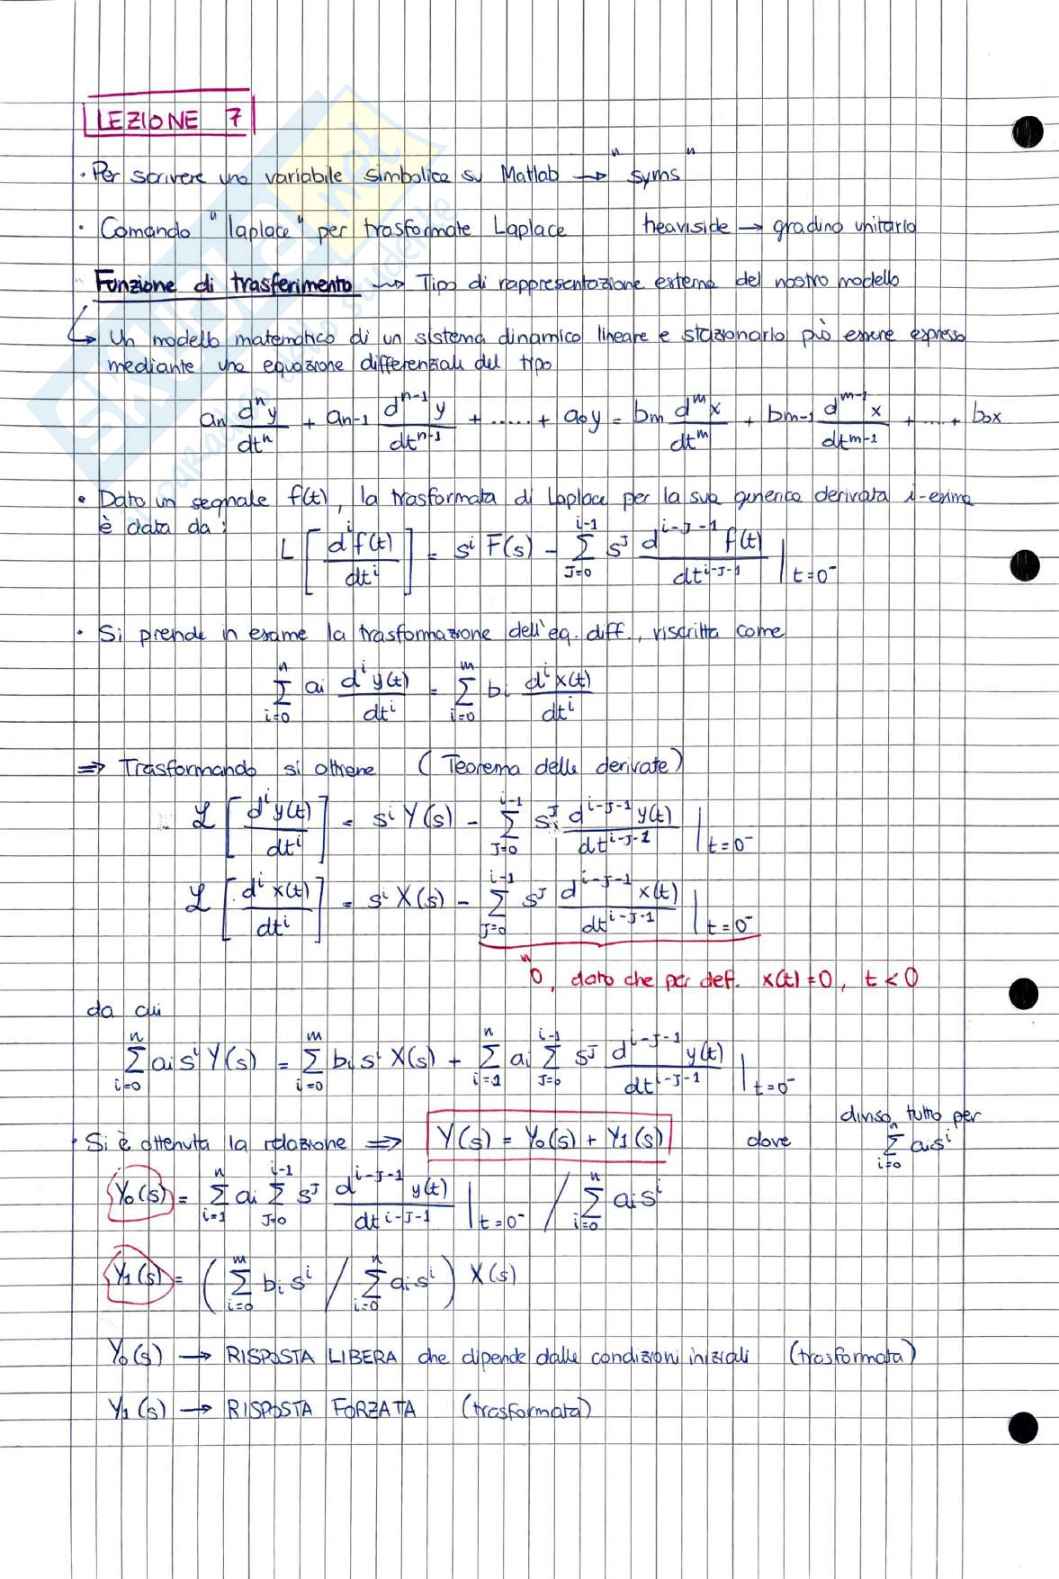 LEZIONE 7
· Per scrivere una variabile simbolica su Matlab → "syms"
· Comando "laplace" per trasformate Laplace heaviside → gradino unitario
Funzione di trasferimento → Tipo di rappresentazione esterna del nostro modello
↳ Un modello matematico di un sistema dinamico lineare e stazionario può essere espresso
mediante una equazione differenziale del tipo
an d^n y/dt^n + an-1 d^n-1 y/dt^n-1 + ..... + a0y = bm d^m x/dt^m + bm-1 d^m-1 x/dt^m-1 + .... + b0x
• Dato un segnale f(t), la trasformata di Laplace per la sua generica derivata i-esima
è data da:
L [d^i f(t)/dt^i] = s^i F(s) - Σ_{J=0}^{i-1} s^J d^i-J-1 f(t)/dt^i-J-1 |t=0⁻
· Si prende in esame la trasformazione dell'eq. diff., riscritta come
Σ_{i=0}^{n} ai d^i y(t)/dt^i = Σ_{i=0}^{m} bi d^i x(t)/dt^i
⇒ Trasformando si ottiene (Teorema delle derivate)
ℒ [d^i y(t)/dt^i] = s^i Y(s) - Σ_{J=0}^{i-1} s^J d^i-J-1 y(t)/dt^i-J-1 |t=0⁻
ℒ [d^i x(t)/dt^i] = s^i X(s) - Σ_{J=0}^{i-1} s^J d^i-J-1 x(t)/dt^i-J-1 |t=0⁻
"0, dato che per def. x(t)=0, t<0
da cui
Σ_{i=0}^{n} ai s^i Y(s) = Σ_{i=0}^{m} bi s^i X(s) + Σ_{i=1}^{n} ai Σ_{J=0}^{i-1} s^J d^i-J-1 y(t)/dt^i-J-1 |t=0⁻
· Si è ottenuta la relazione ⇒ Y(s) = Y0(s) + Y1(s) dove diviso tutto per Σ_{i=0}^{n} ai s^i
Y0(s) = Σ_{i=1}^{n} ai Σ_{J=0}^{i-1} s^J d^i-J-1 y(t)/dt^i-J-1 |t=0⁻ / Σ_{i=0}^{n} ai s^i
Y1(s) = (Σ_{i=0}^{m} bi s^i / Σ_{i=0}^{n} ai s^i) X(s)
Y0(s) → RISPOSTA LIBERA che dipende dalle condizioni iniziali (trasformata)
Y1(s) → RISPOSTA FORZATA (trasformata)